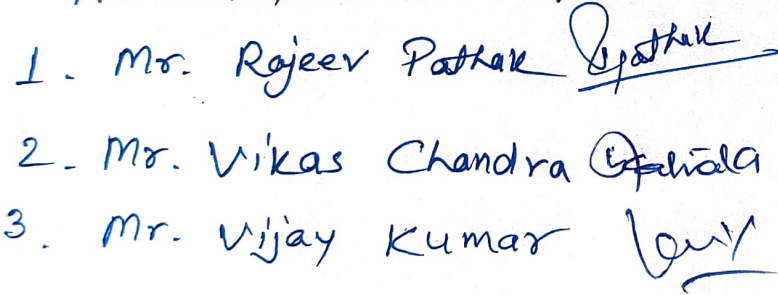 1. Mr. Rajeev Pathak
2- Mr. Vikas Chandra
3. Mr. Vijay Kumar